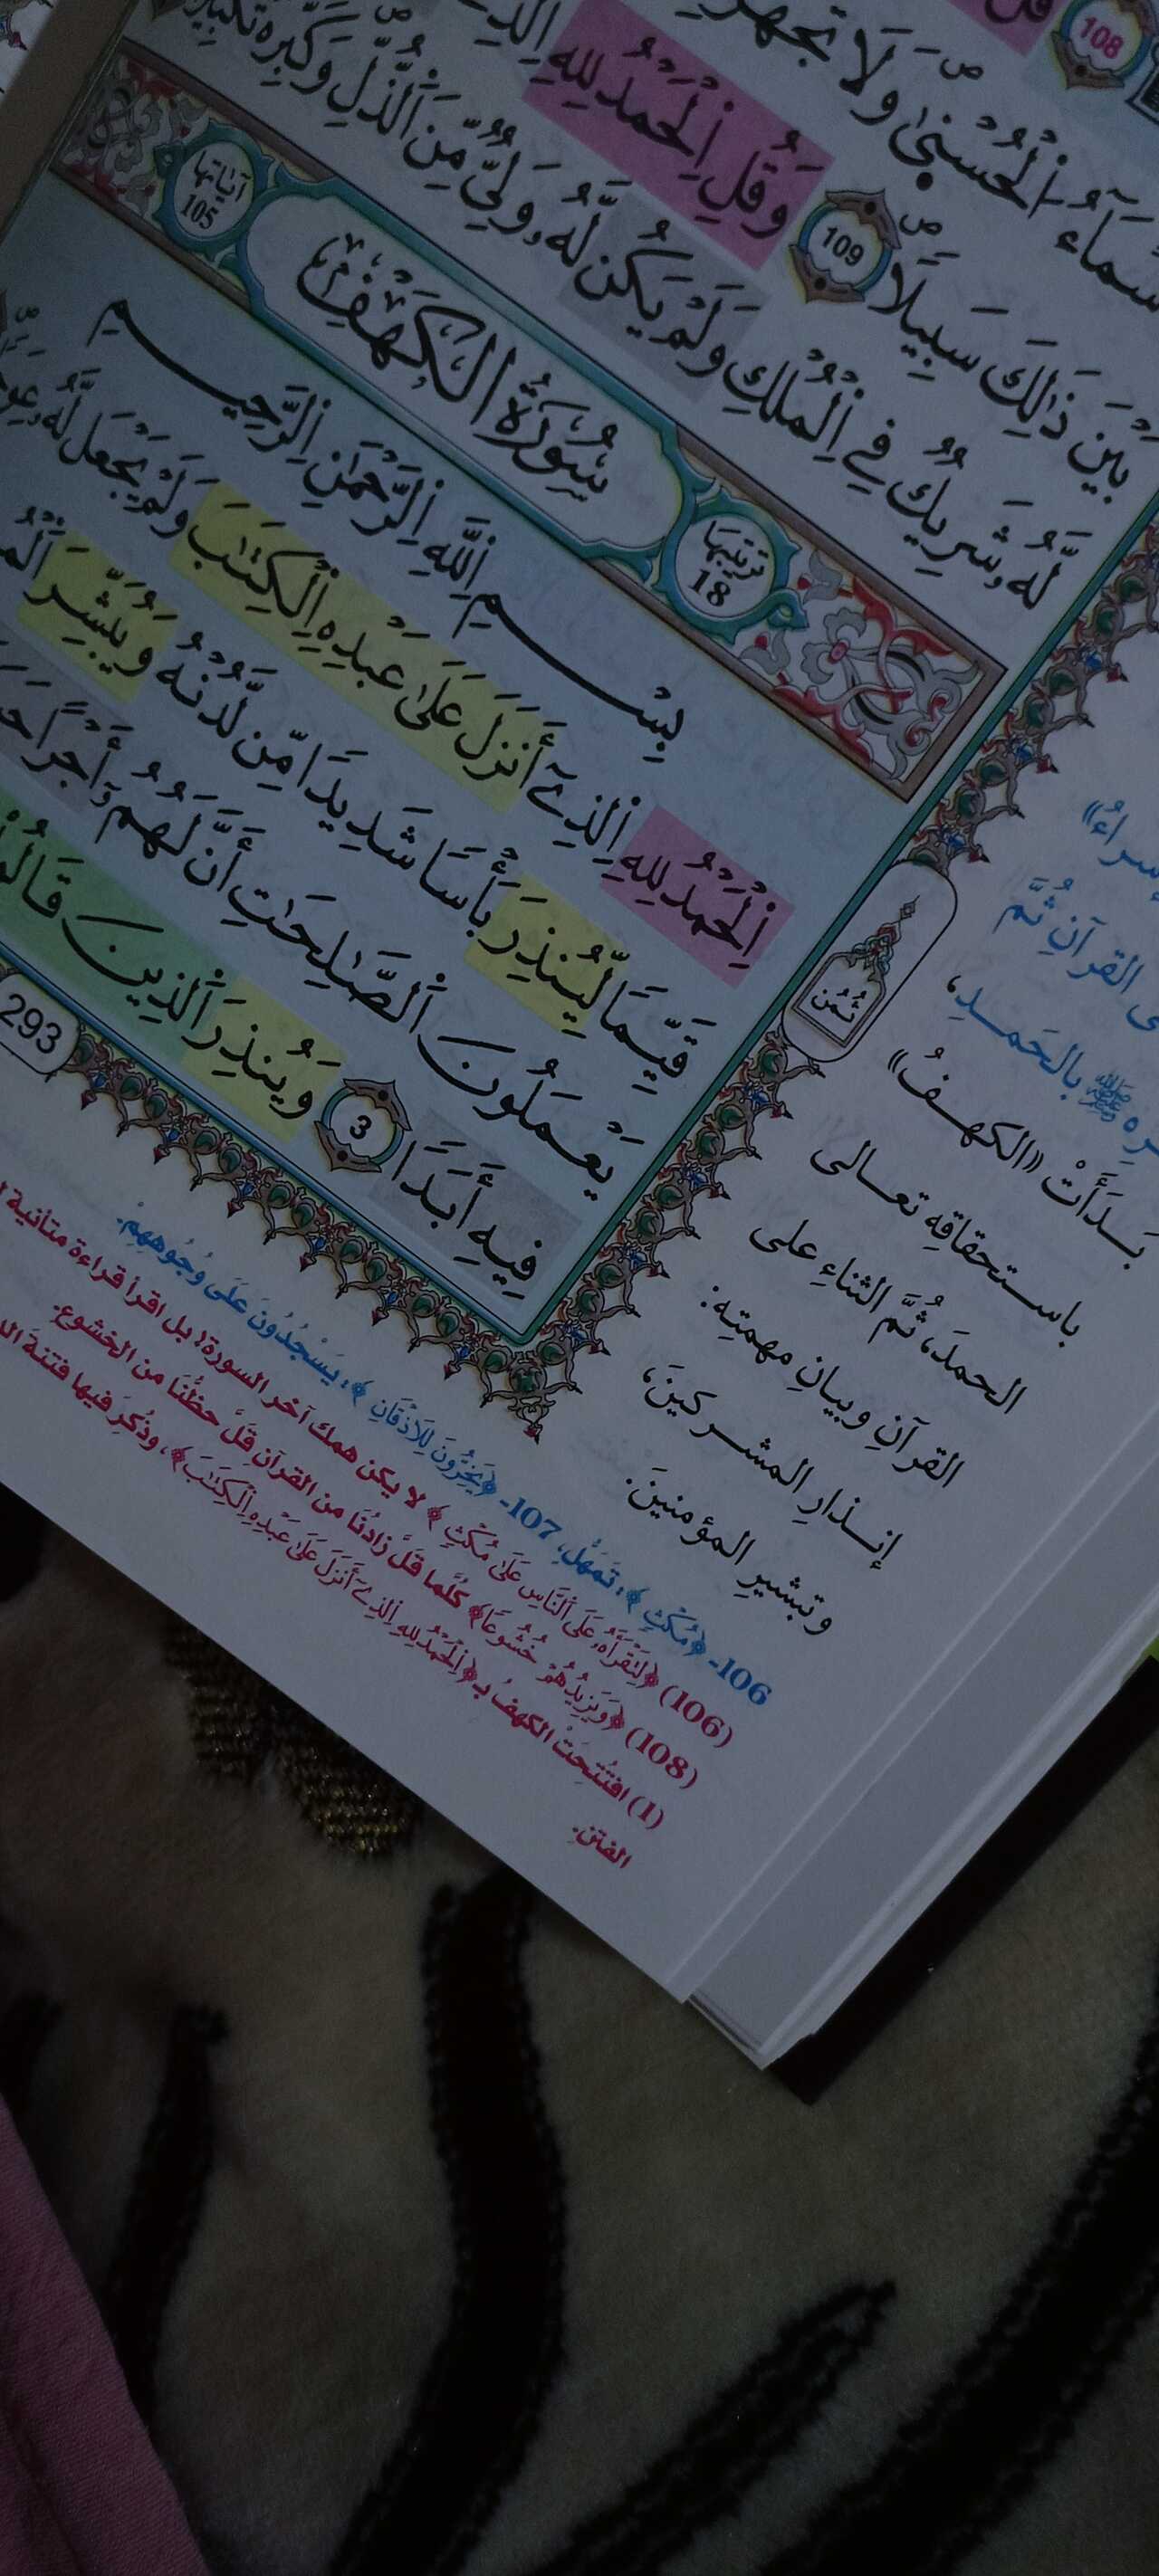 108
اَ۬لْحُسْن۪يٰ وَلَا تَجْهَرْ
بَيْنَ ذَٰلِكَ سَبِيلاٗ 109 وَقُلِ اِ۬لْحَمْدُ لِلهِ اِ۬لذِے
لَّهُۥ شَرِيكٞ فِے اِ۬لْمُلْكِ وَلَمْ يَكُن لَّهُۥ وَلِيّٞ مِّنَ اَ۬لذُّلِّ وَكَبِّرْهُ تَكْبِيراٗ
ترتيبها 18
سُورَةُ الكَهْفِ
آياتها 105
بِسْمِ اِ۬للَّهِ اِ۬لرَّحْمَٰنِ اِ۬لرَّحِيمِ
اِ۬لْحَمْدُ لِلهِ اِ۬لذِےٓ أَنزَلَ عَلَىٰ عَبْدِهِ اِ۬لْكِتَٰبَ وَلَمْ يَجْعَل لَّهُۥ
قَيِّماٗ لِّيُنذِرَ بَأْساٗ شَدِيداٗ مِّن لَّدُنْهُ وَيُبَشِّرَ
يَعْمَلُونَ اَ۬لصَّٰلِحَٰتِ أَنَّ لَهُمُۥٓ أَجْراً
فِيهِ أَبَداٗ 3 وَيُنذِرَ اَ۬لذِينَ قَالُوا
293
ثُمُن
القرآنِ ثُمَّ
بالحَمـدِ،
بَـدَأَتْ «الكهـفُ»
باسـتحقاقِه تعـالى
الحمدَ، ثُمَّ الثناءِ على
القرآنِ وبيانِ مهمتِه:
إنـذارِ المشـركينَ،
وتبشيرِ المؤمنينَ.
106- ﴿مُكْثٍ﴾: تَمَهُّلٍ، 107- ﴿يَخِرُّونَ لِلْأَذْقَانِ﴾: يَسْجُدُونَ عَلَى وُجُوهِهِمْ.
(106) ﴿لِتَقْرَأَهُۥ عَلَى اَ۬لنَّاسِ عَلَىٰ مُكْثٖ﴾ لا يكن همك آخر السورة؛ بل اقرأ قراءة متأنية
(108) ﴿وَيَزِيدُهُمْ خُشُوعاٗ﴾ كُلَّما قَلَّ زادُنَا من القرآن قَلَّ حظُّنَا من الخشوع.
(1) افتُتِحَتْ الكهفُ بـ ﴿اِ۬لْحَمْدُ لِلهِ اِ۬لذِےٓ أَنزَلَ عَلَىٰ عَبْدِهِ اِ۬لْكِتَٰبَ﴾، وذُكِرَ فيها فتنةَ
الفتن.